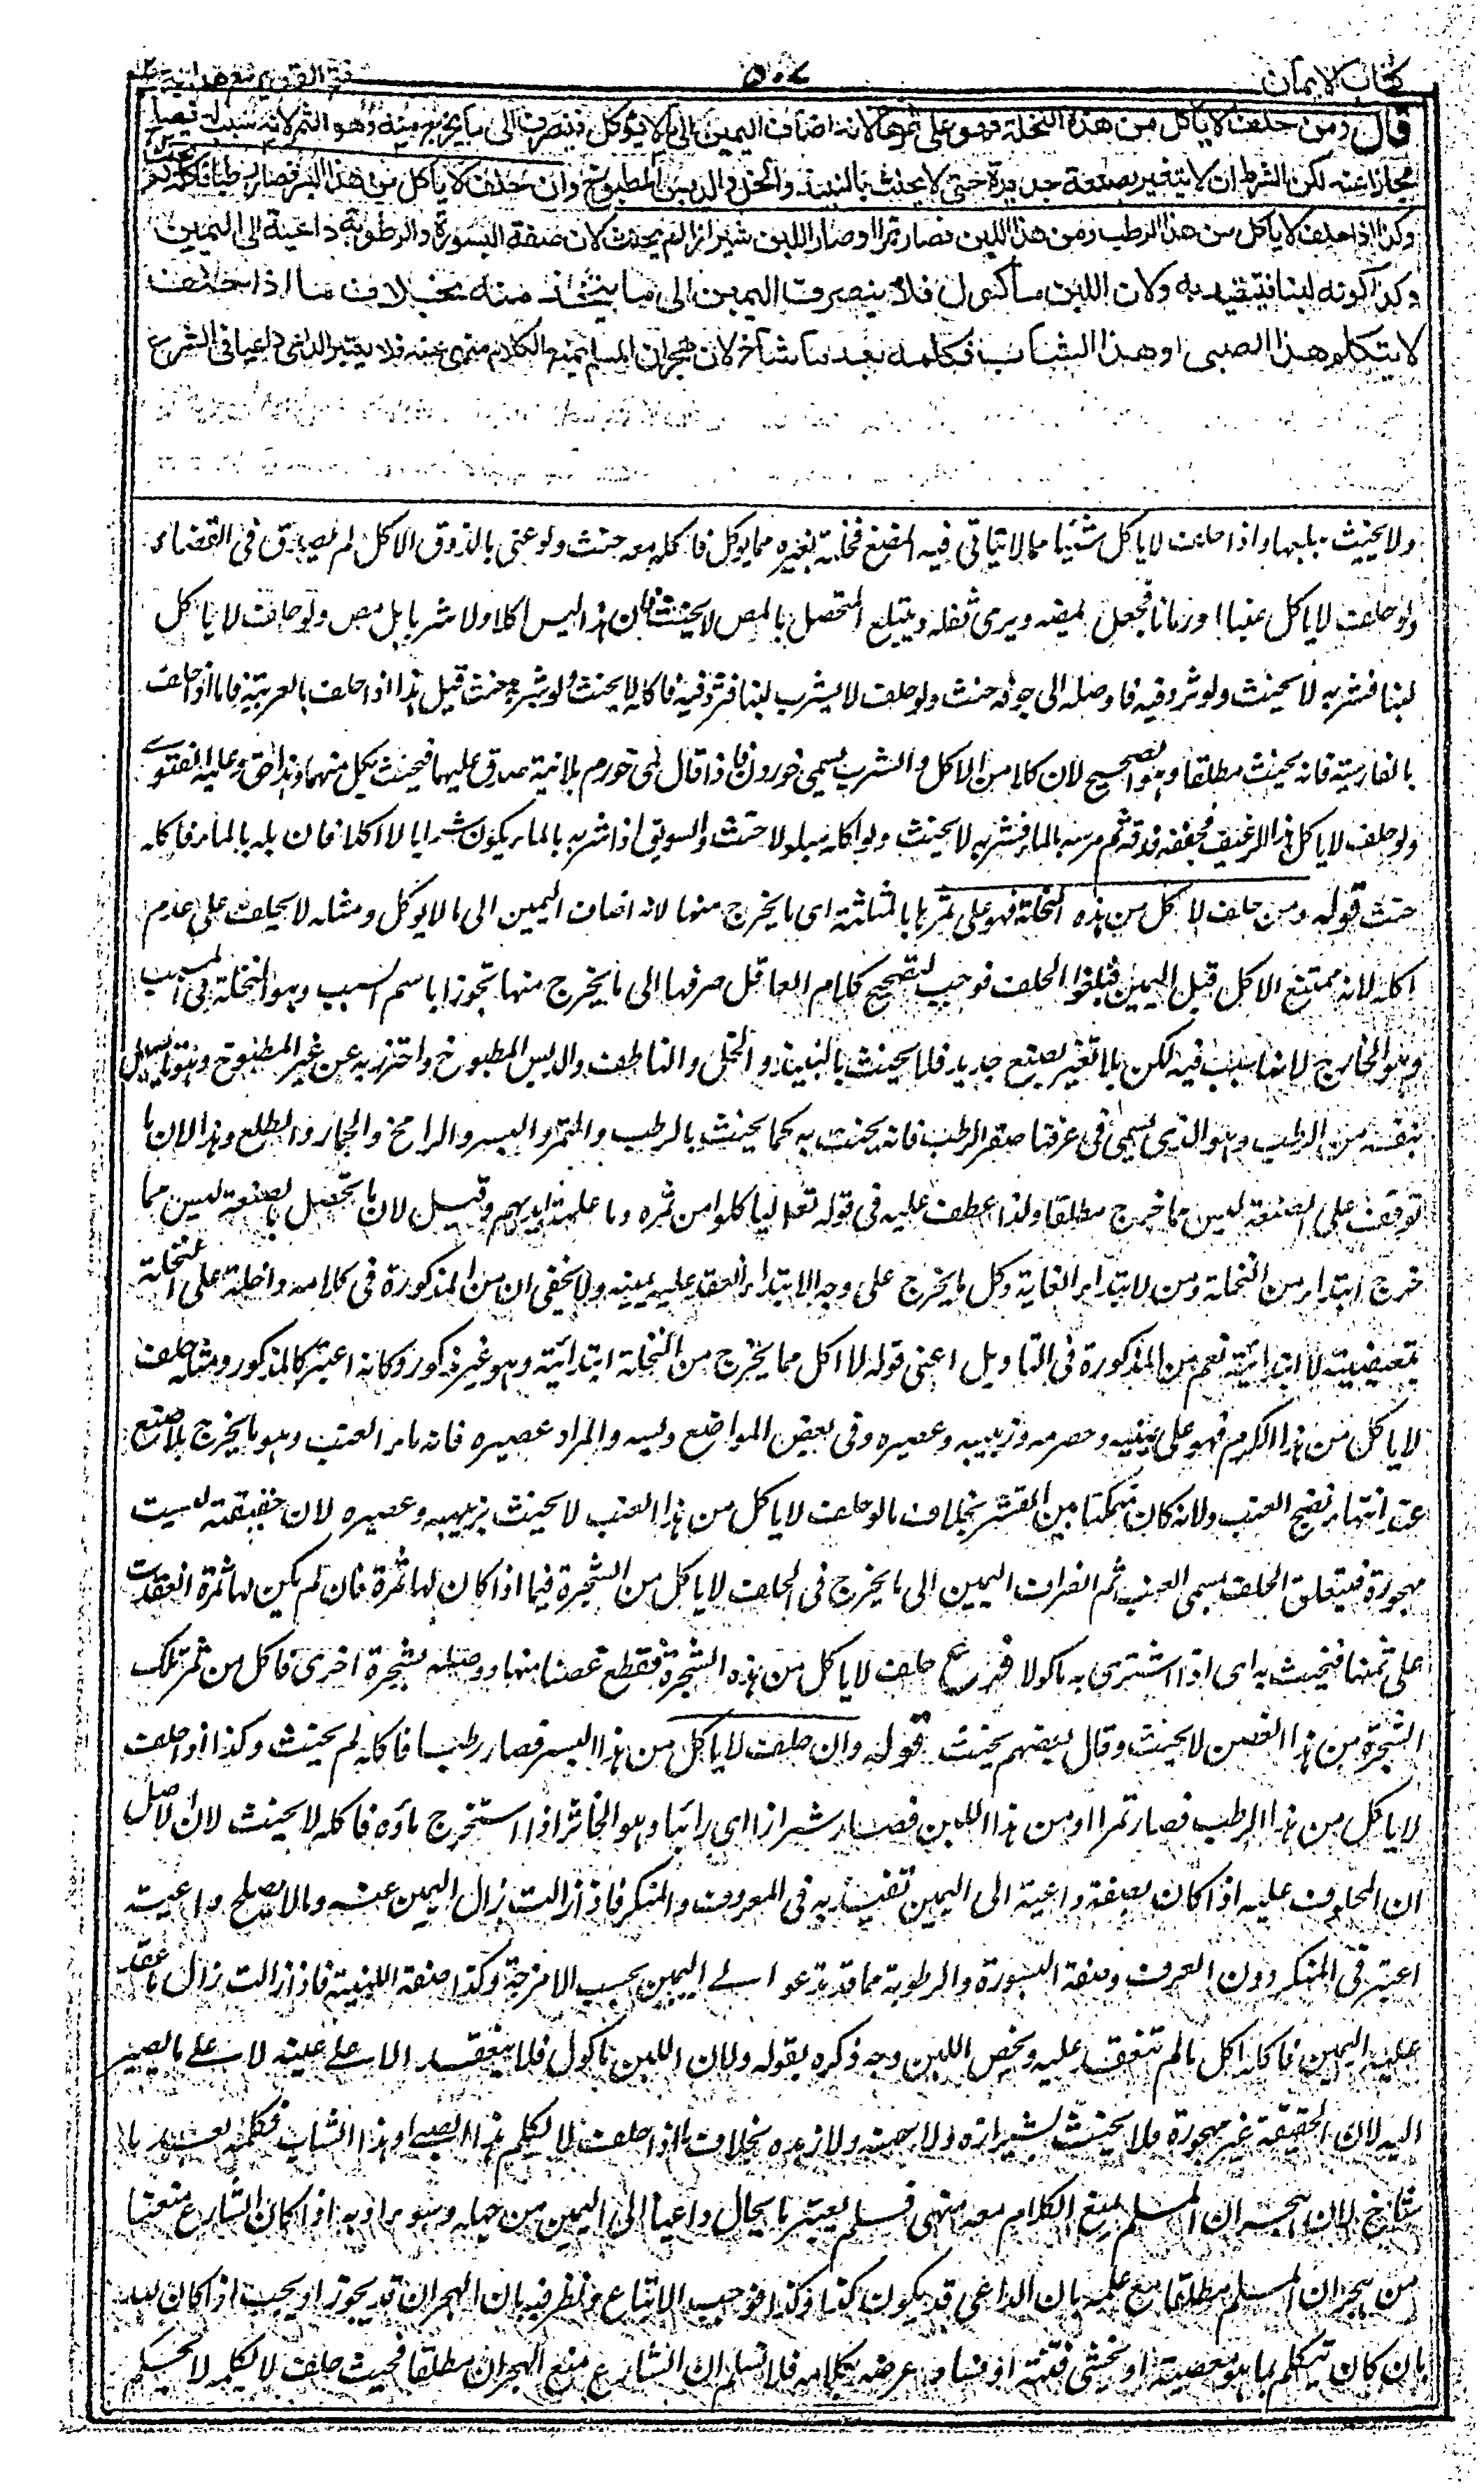 كتاب الايمان ٥٠٧ فتح القدير مع هداية
قال ومن حلف لا ياكل من هذه النخلة فهو على ثمرها لانه اضاف اليمين الى ما لا يوكل فينصرف الى ما يخرج منه وهو الثمر لانه سبب له فيصلح
مجازا عنه لكن الشرط ان لا يتغير بصنعة جديدة حتى لا يحنث بالنبيذ والخل والدبس المطبوخ وان حلف لا ياكل من هذا البسر فصار رطبا فاكله لم يحنث
وكذا اذا حلف لا ياكل من هذا الرطب ومن هذا اللبن فصار تمرا او صار اللبن شيرازا لم يحنث لان صفة البسورة والرطوبة داعية الى اليمين
وكذا كونه لبنا فيتقيد به ولان اللبن ماكول فلا ينصرف اليمين الى ما يتخذ منه بخلاف ما اذا حلف
لا يتكلم هذا الصبى او هذا الشاب فكلمه بعد ما شاخ لان هجران المسلم بمنع الكلام منهى عنه فلا يعتبر الداعى داعيا فى الشرع
ولا يحنث ببلعها واذا حلف لا ياكل شيئا مما لا يتاتى فيه المضغ فخلطه بغيره مما يوكل فاكله معه حنث ولو عنى بالذوق الاكل لم يصدق فى القضاء
ولو حلف لا ياكل عنبا او رمانا فجعل يمصه ويرمى ثفله ويبتلع المتحصل بالمص لا يحنث لان هذا ليس اكلا ولا شربا بل مص ولو حلف لا ياكل
لبنا فشربه لا يحنث ولو ثرد فيه فاوصله الى جوفه حنث ولو حلف لا يشرب لبنا فثرد فيه فاكله لا يحنث ولو شربه حنث قيل هذا اذا حلف بالعربية فاما اذا حلف
بالفارسية فانه يحنث مطلقا وهو الصحيح لان كلا من الاكل والشرب يسمى خوردن فاذا قال نمى خورم بلا نية صدق عليهما فيحنث بكل منهما وهذا حق وعليه الفتوى
ولو حلف لا ياكل هذا الرغيف فجففه فدقه ثم مرسه بالماء فشربه لا يحنث ولو اكله مبلولا حنث والسويق اذا شربه بالماء يكون شربا لا اكلا فان بله بالماء فاكله
حنث قوله ومن حلف لا ياكل من هذه النخلة فهو على ثمرها بالمثلثة اى ما يخرج منها لانه اضاف اليمين الى ما لا يوكل ومثله لا يحلف على عدم
اكله لانه ممتنع الاكل قبل اليمين فيلغوا الحلف فوجب لتصحيح كلام العاقل صرفها الى ما يخرج منها تجوزا باسم السبب وهو النخلة فى المسبب
وهو الخارج لانها سبب فيه لكن بلا تغير بصنع جديد فلا يحنث بالنبيذ والخل والناطف والدبس المطبوخ واحترز به عن غير المطبوخ وهو ما يسيل
بنفسه من الرطب وهو الذى يسمى فى عرفنا صقر الرطب فانه يحنث به كما يحنث بالرطب والتمر والبسر والرامخ والجمار والطلع وهذا لان ما
توقف على الصنعة ليس ما خرج مطلقا ولذا عطف عليه فى قوله تعالى لياكلوا من ثمره وما عملته ايديهم وقيل لان ما تحصل بالصنعة ليس مما
خرج ابتداء من النخلة ومن لابتداء الغاية وكل ما يخرج على وجه الابتداء انعقد عليه يمينه ولا يخفى ان من المذكورة فى كلامه داخلة على النخلة
تبعيضية لا ابتدائية نعم من المذكورة فى التاويل اعنى قوله لا اكل مما يخرج من النخلة ابتدائية وهو غير مذكور وكانه اعتبر كالمذكور ومثله حلف
لا ياكل من هذا الكرم فهو على عنبه وحصرمه وزبيبه وعصيره وفى بعض المواضع ودبسه والمراد عصيره فانه ماء العنب وهو ما يخرج بلا صنع
عند انتهاء نضج العنب ولانه كان متمكنا بين القشر بخلاف ما لو حلف لا ياكل من هذا العنب لا يحنث بزبيبه وعصيره لان حقيقته ليست
مهجورة فيتعلق الحلف بمسمى العنب ثم انصراف اليمين الى ما يخرج فى الحلف لا ياكل من الشجرة فيما اذا كان لها ثمرة فان لم يكن لها ثمرة انعقدت
على ثمنها فيحنث به اى اذا اشترى به ماكولا فرع حلف لا ياكل من هذه الشجرة فقطع غصنا منها ووصله بشجرة اخرى فاكل من ثمر تلك
الشجرة من هذا الغصن لا يحنث وقال بعضهم يحنث قوله وان حلف لا ياكل من هذا البسر فصار رطبا فاكله لم يحنث وكذا اذا حلف
لا ياكل من هذا الرطب فصار تمرا او من هذا اللبن فصار شيرازا اى رائبا وهو الخاثر اذا استخرج ماؤه فاكله لا يحنث لان الاصل
ان المحلوف عليه اذا كان بصفة داعية الى اليمين تقيد به فى المعروف والمنكر فاذا زالت زال اليمين عنه وما لا يصلح داعية
اعتبر فى المنكر دون المعرف وصفة البسورة والرطوبة مما قد تدعو الى اليمين بحسب الامزجة وكذا صفة اللبنية فاذا زالت زال ما عقد
عليه اليمين فاكله اكل ما لم تنعقد عليه ويخص اللبن وجه ذكره بقوله ولان اللبن ماكول فلا ينعقد الا على عينه لا على ما يصير
اليه لان الحقيقة غير مهجورة فلا يحنث بشيرازه ولا بسمنه ولا زبده بخلاف ما اذا حلف لا يكلم هذا الصبى او هذا الشاب فكلمه بعد ما
شاخ لان هجران المسلم بمنع الكلام معه منهى فلم يعتبر ما يخال داعيا الى اليمين من جهله وسوء ادبه اذا كان الشارع منعنا
من هجران المسلم مطلقا مع علمه بان الداعى قد يكون كذا وكذا فوجب الاتباع ونظر فيه بان الهجران قد يجوز او يجب اذا كان لله
بان كان يتكلم بما هو معصية او يخشى فتنة او فساد عرضه بكلامه فلا نسلم ان الشارع منع الهجران مطلقا فحيث حلف لا يكلمه لا يحكم